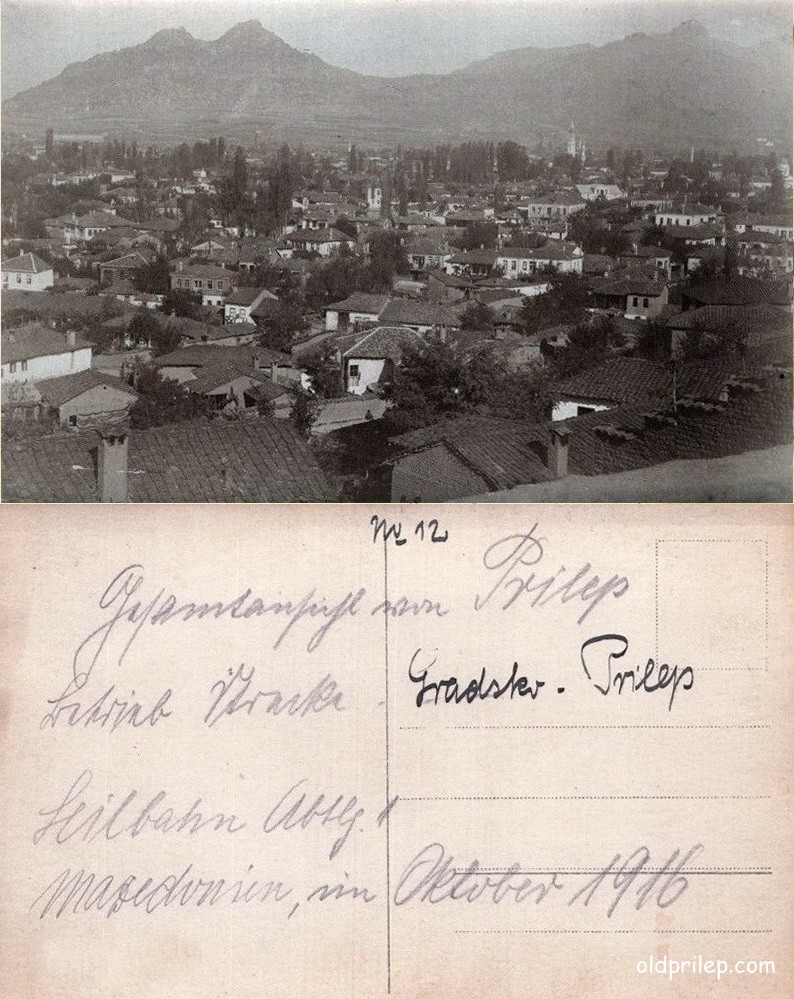 No 12
Gesamtansicht von Prilep
Betrieb Strecke. Gradsko. Prilep
Seilbahn Abtlg. 1
Mazedonien, im Oktober 1916
oldprilep.com